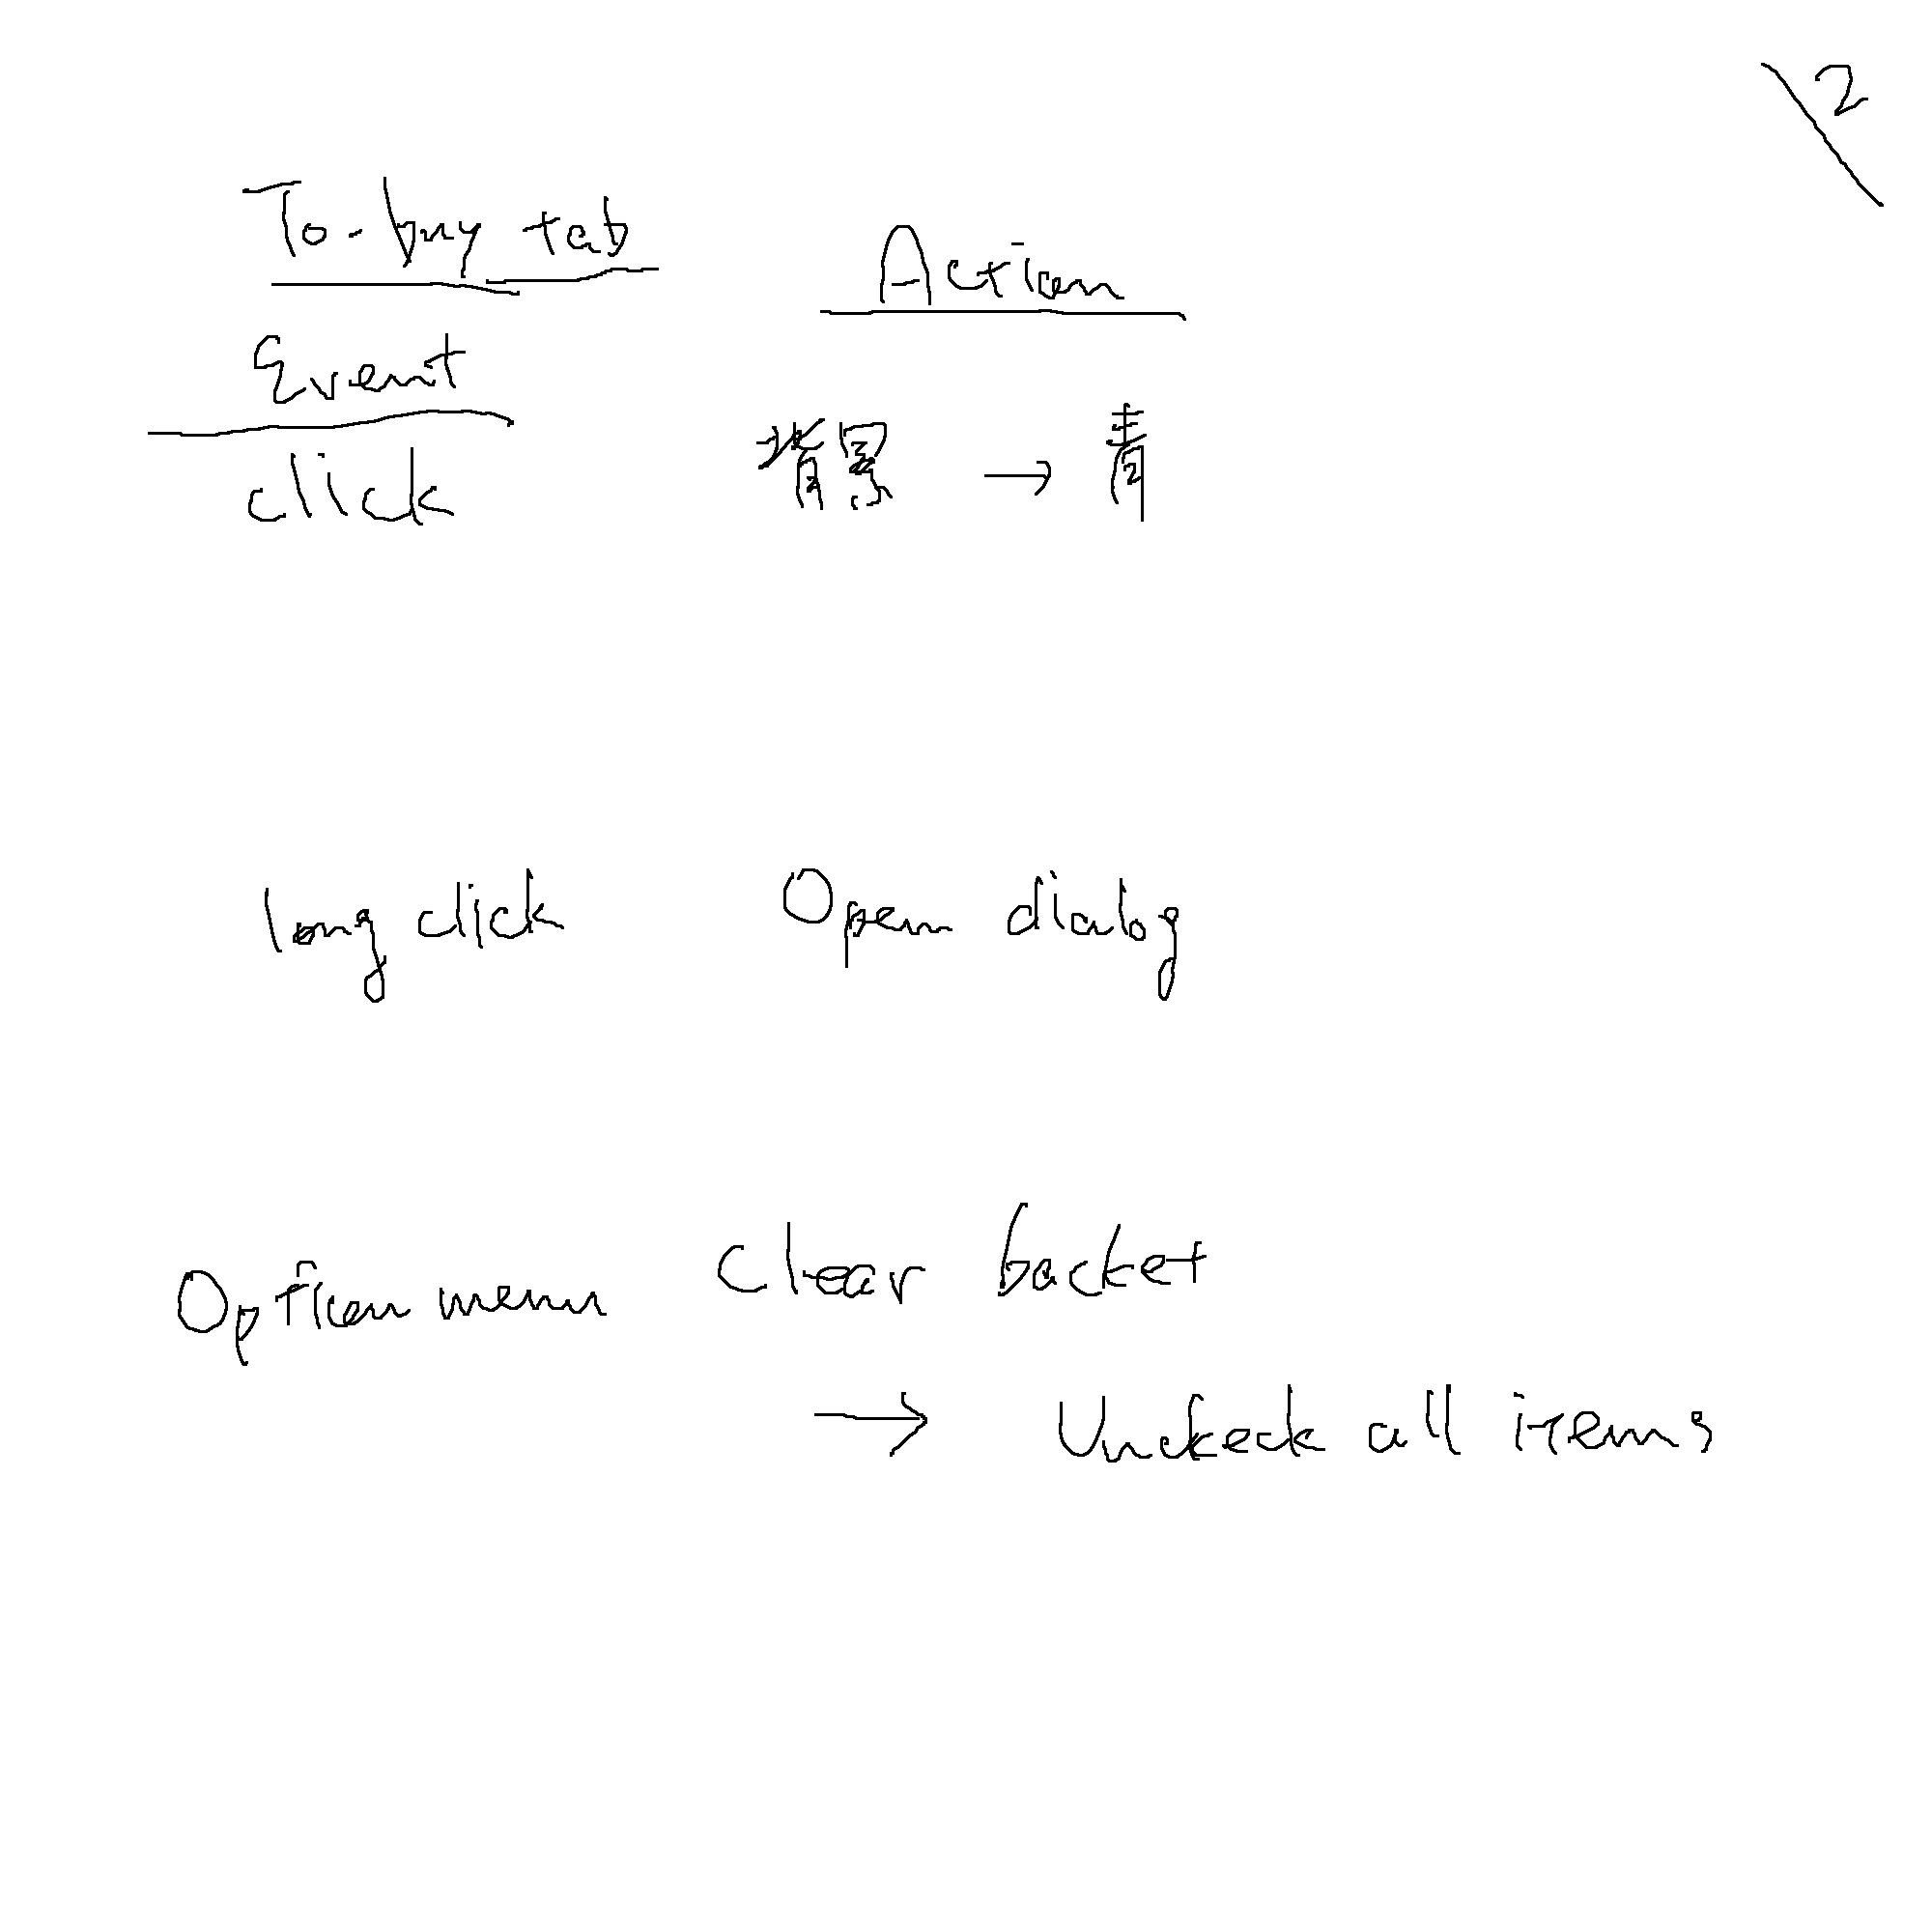 2
To-buy tab
Action
Event
click 背景 → 青
long click Open dialog
Option menu Clear backet
→ Uncheck all items